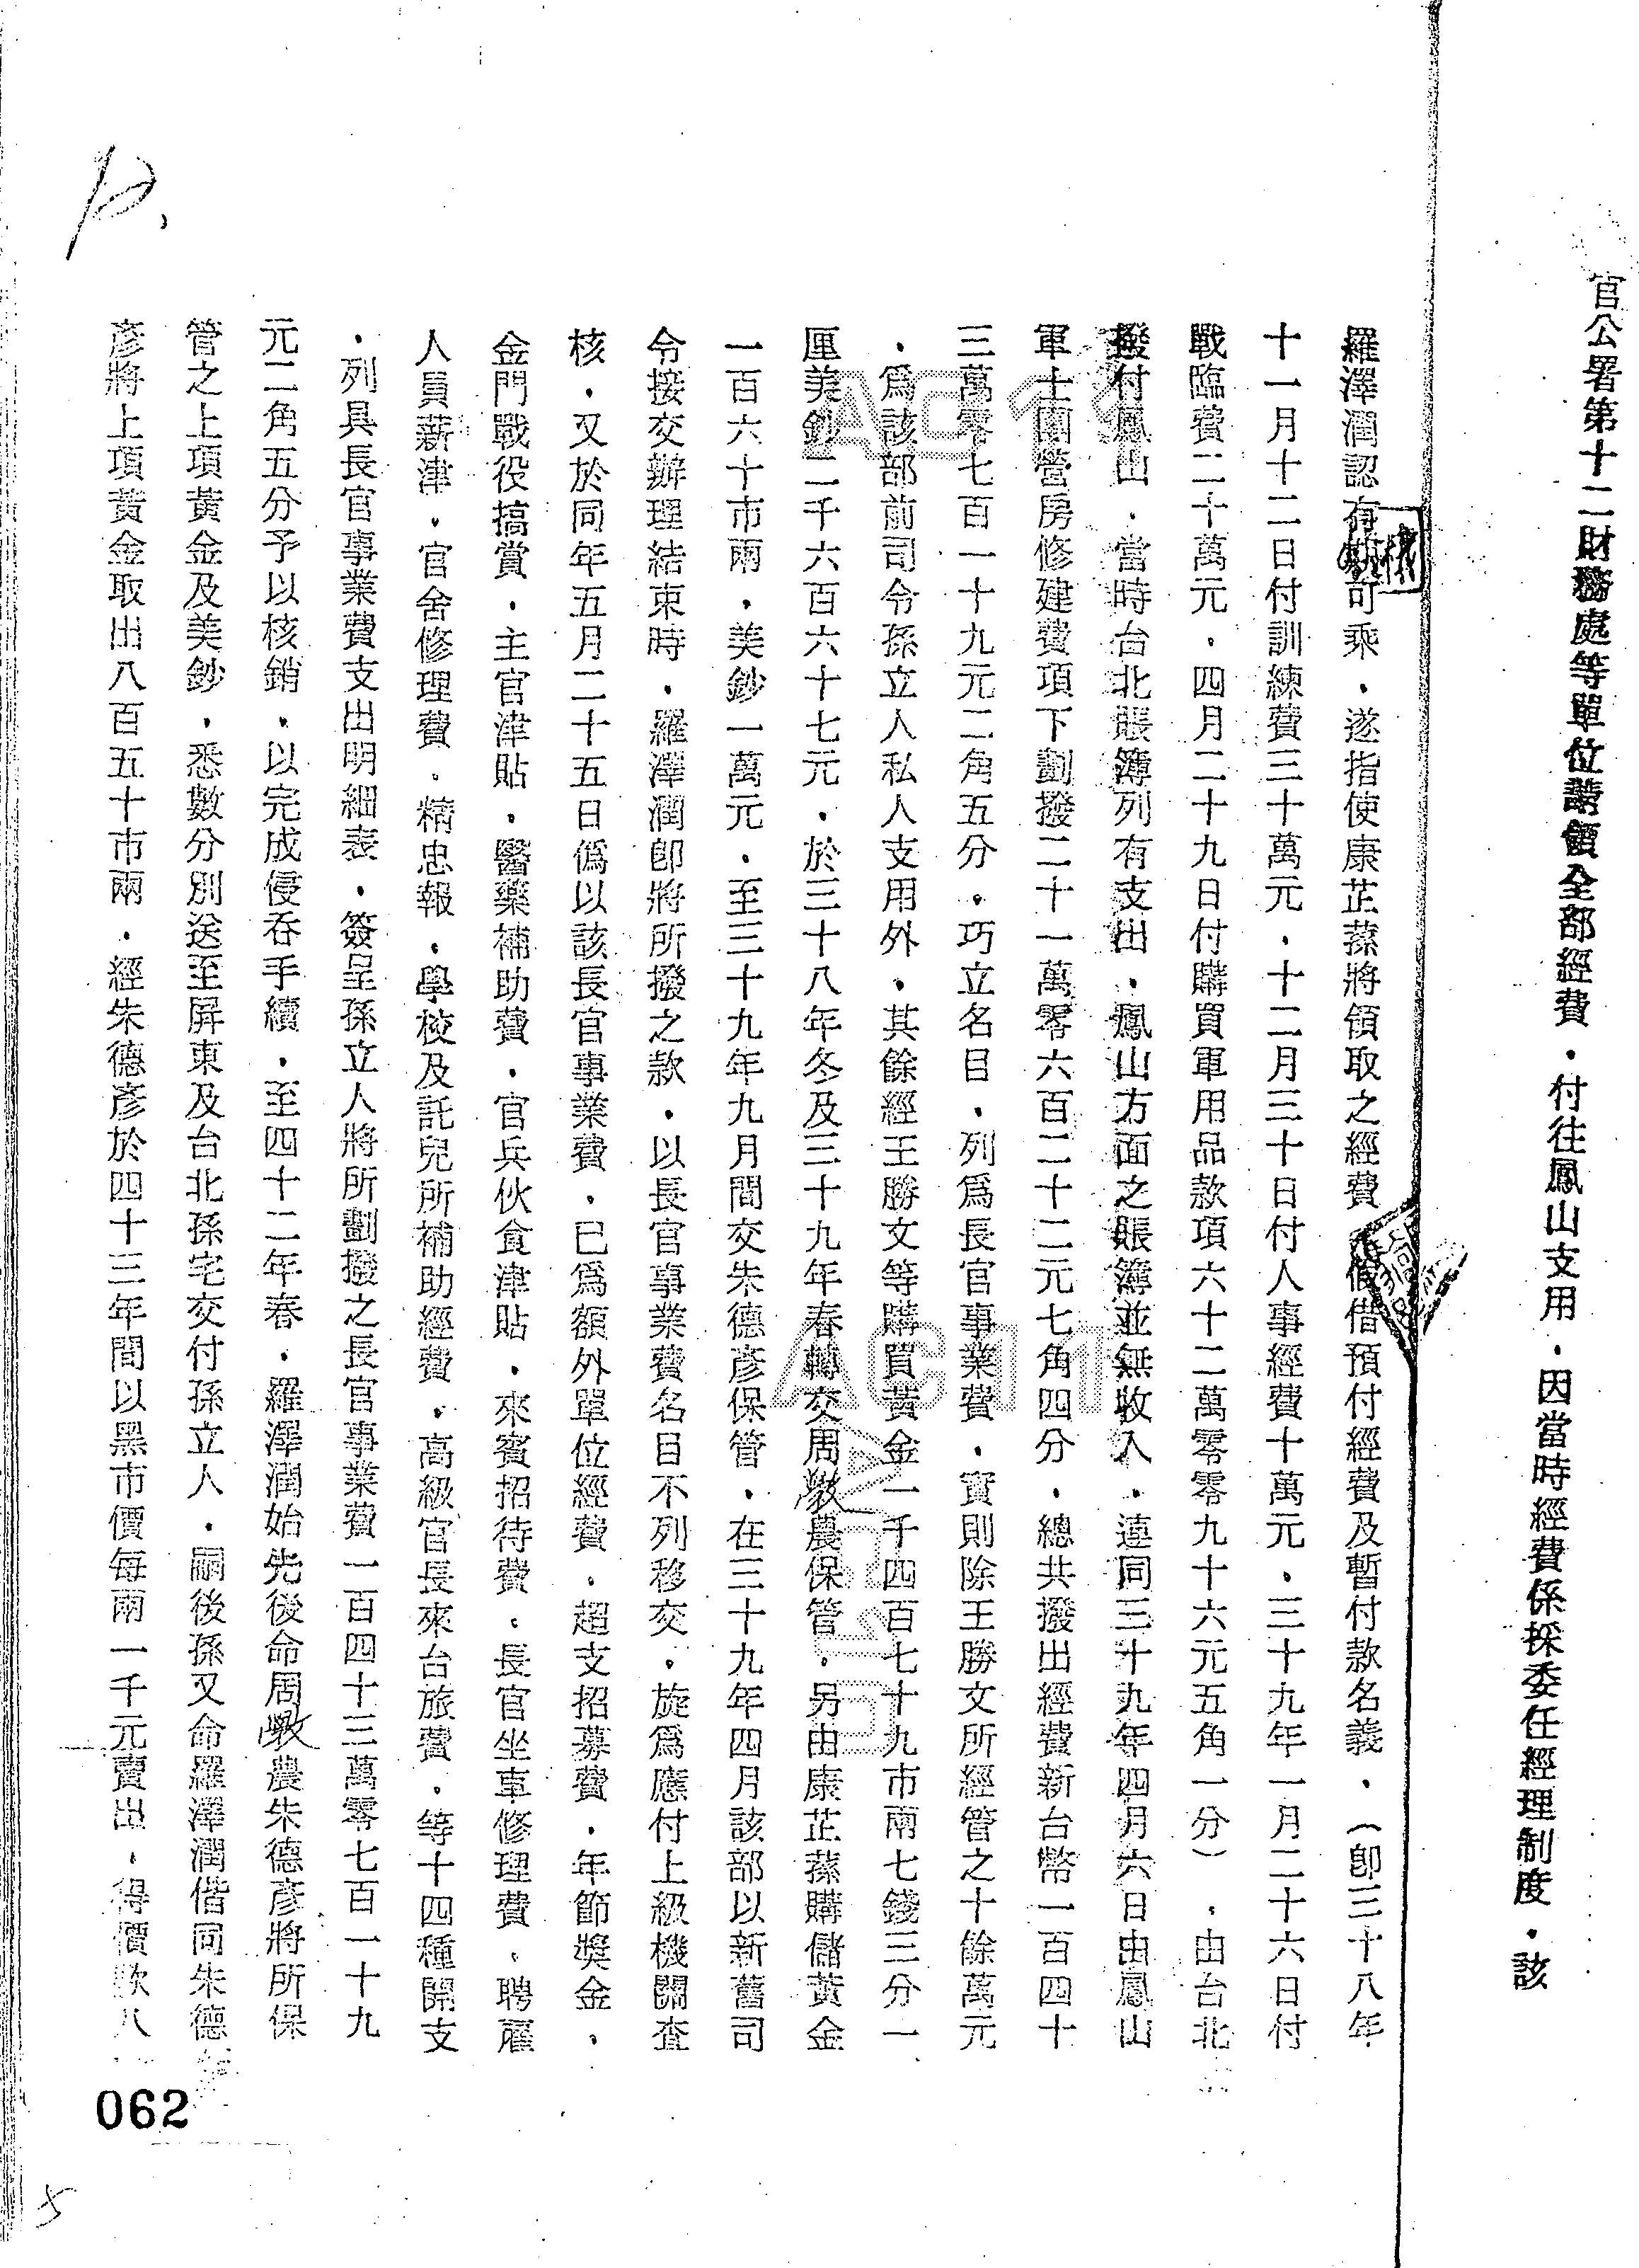 官公署第十二財務處等單位請領全部經費．付往鳳山支用．因當時經費係採委任經理制度．該
羅澤潤認有機可乘．遂指使康芷蓀將領取之經費假借預付經費及暫付款名義．（卽三十八年
十一月十二日付訓練費三十萬元．十二月三十日付人事經費十萬元．三十九年一月二十六日付
戰臨費二十萬元．四月二十九日付購買軍用品款項六十二萬零零九十六元五角一分）．由台北
撥付鳳山．當時台北賬簿列有支出．鳳山方面之賬簿並無收入．連同三十九年四月六日由鳳山
軍士團營房修建費項下劃撥二十一萬零六百二十二元七角四分．總共撥出經費新台幣一百四十
三萬零七百一十九元二角五分．巧立名目．列爲長官事業費．實則除王勝文所經管之十餘萬元
．爲該部前司令孫立人私人支用外．其餘經王勝文等購買黃金一千四百七十九市兩七錢三分一
厘美鈔二千六百六十七元．於三十八年冬及三十九年春轉交周斆農保管．另由康芷蓀購儲黃金
一百六十市兩．美鈔一萬元．至三十九年九月間交朱德彥保管．在三十九年四月該部以新舊司
令接交辦理結束時．羅澤潤卽將所撥之款．以長官事業費名目不列移交．旋爲應付上級機關查
核．又於同年五月二十五日僞以該長官事業費．已爲額外單位經費．超支招募費．年節獎金．
金門戰役搞賞．主官津貼．醫藥補助費．官兵伙食津貼．來賓招待費．長官坐車修理費．聘雇
人員薪津．官舍修理費．精忠報．學校及託兒所補助經費．高級官長來台旅費．等十四種開支
．列具長官事業費支出明細表．簽呈孫立人將所劃撥之長官事業費一百四十三萬零七百一十九
元二角五分予以核銷．以完成侵吞手續．至四十二年春．羅澤潤始先後命周斆農朱德彥將所保
管之上項黃金及美鈔．悉數分別送至屏東及台北孫宅交付孫立人．嗣後孫又命羅澤潤偕同朱德
彥將上項黃金取出八百五十市兩．經朱德彥於四十三年間以黑市價每兩一千元賣出．得價欵八
062
5